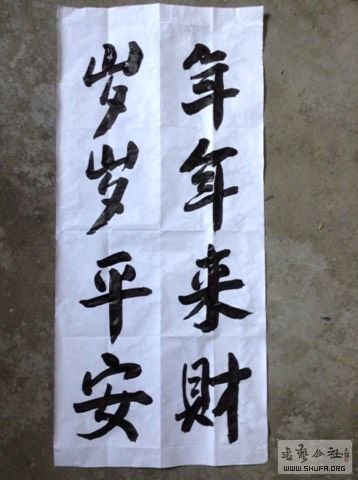 年年来财
岁岁平安
书艺公社
WWW.SHUFA.ORG